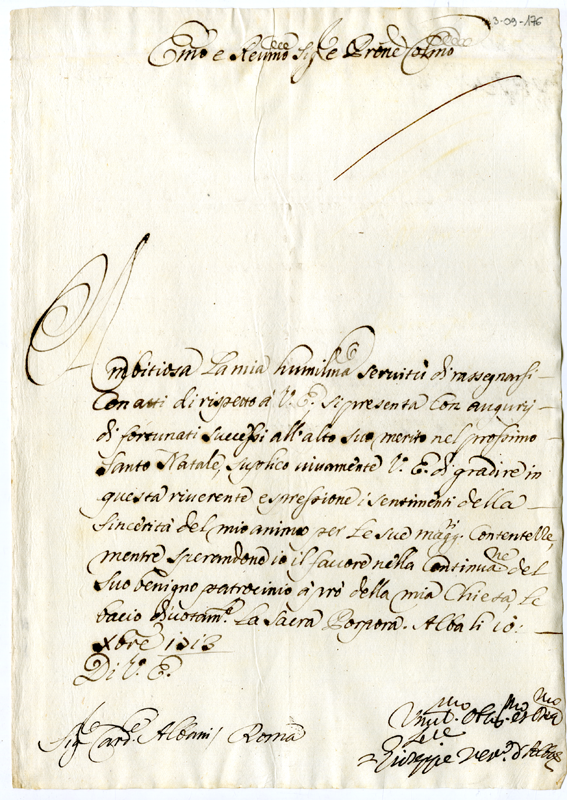 23-09-176
Emõ e Reumõ Sig.re e Prone Colmo
Ambitiosa la mia humilma servitù di rassegnarsi
con atti di rispetto à V. E. si presenta con augurij
di fortunati successi all'alto suo merito nel prossimo
Santo Natale, suplico vivamente V. E. di gradire in
questa riverente espressione i sentimenti della
sincerità del mio animo per le sue magg.ri contentezze,
mentre sperandone io il favore nella continuane del
suo benigno patrocinio à prò della mia Chiesa, le
bacio divotam.e la Sacra Porpora. Alba li 10:
Xbre 1713
Di V. E.
Sig.re Card.e Albani Roma
Umil.mo et
Giuseppe Vesc.o d'Alba